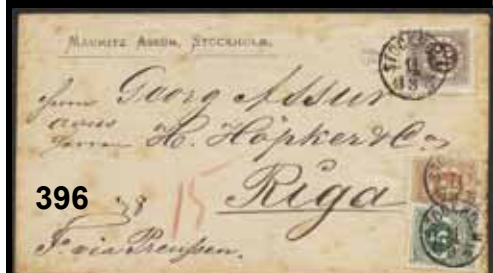 MAURITZ ASSUR, STOCKHOLM.
STOCKHOLM
Herrn Georg Assur
Herren H. Höpker & Co
Riga
396
15
Fr. via Preussen.